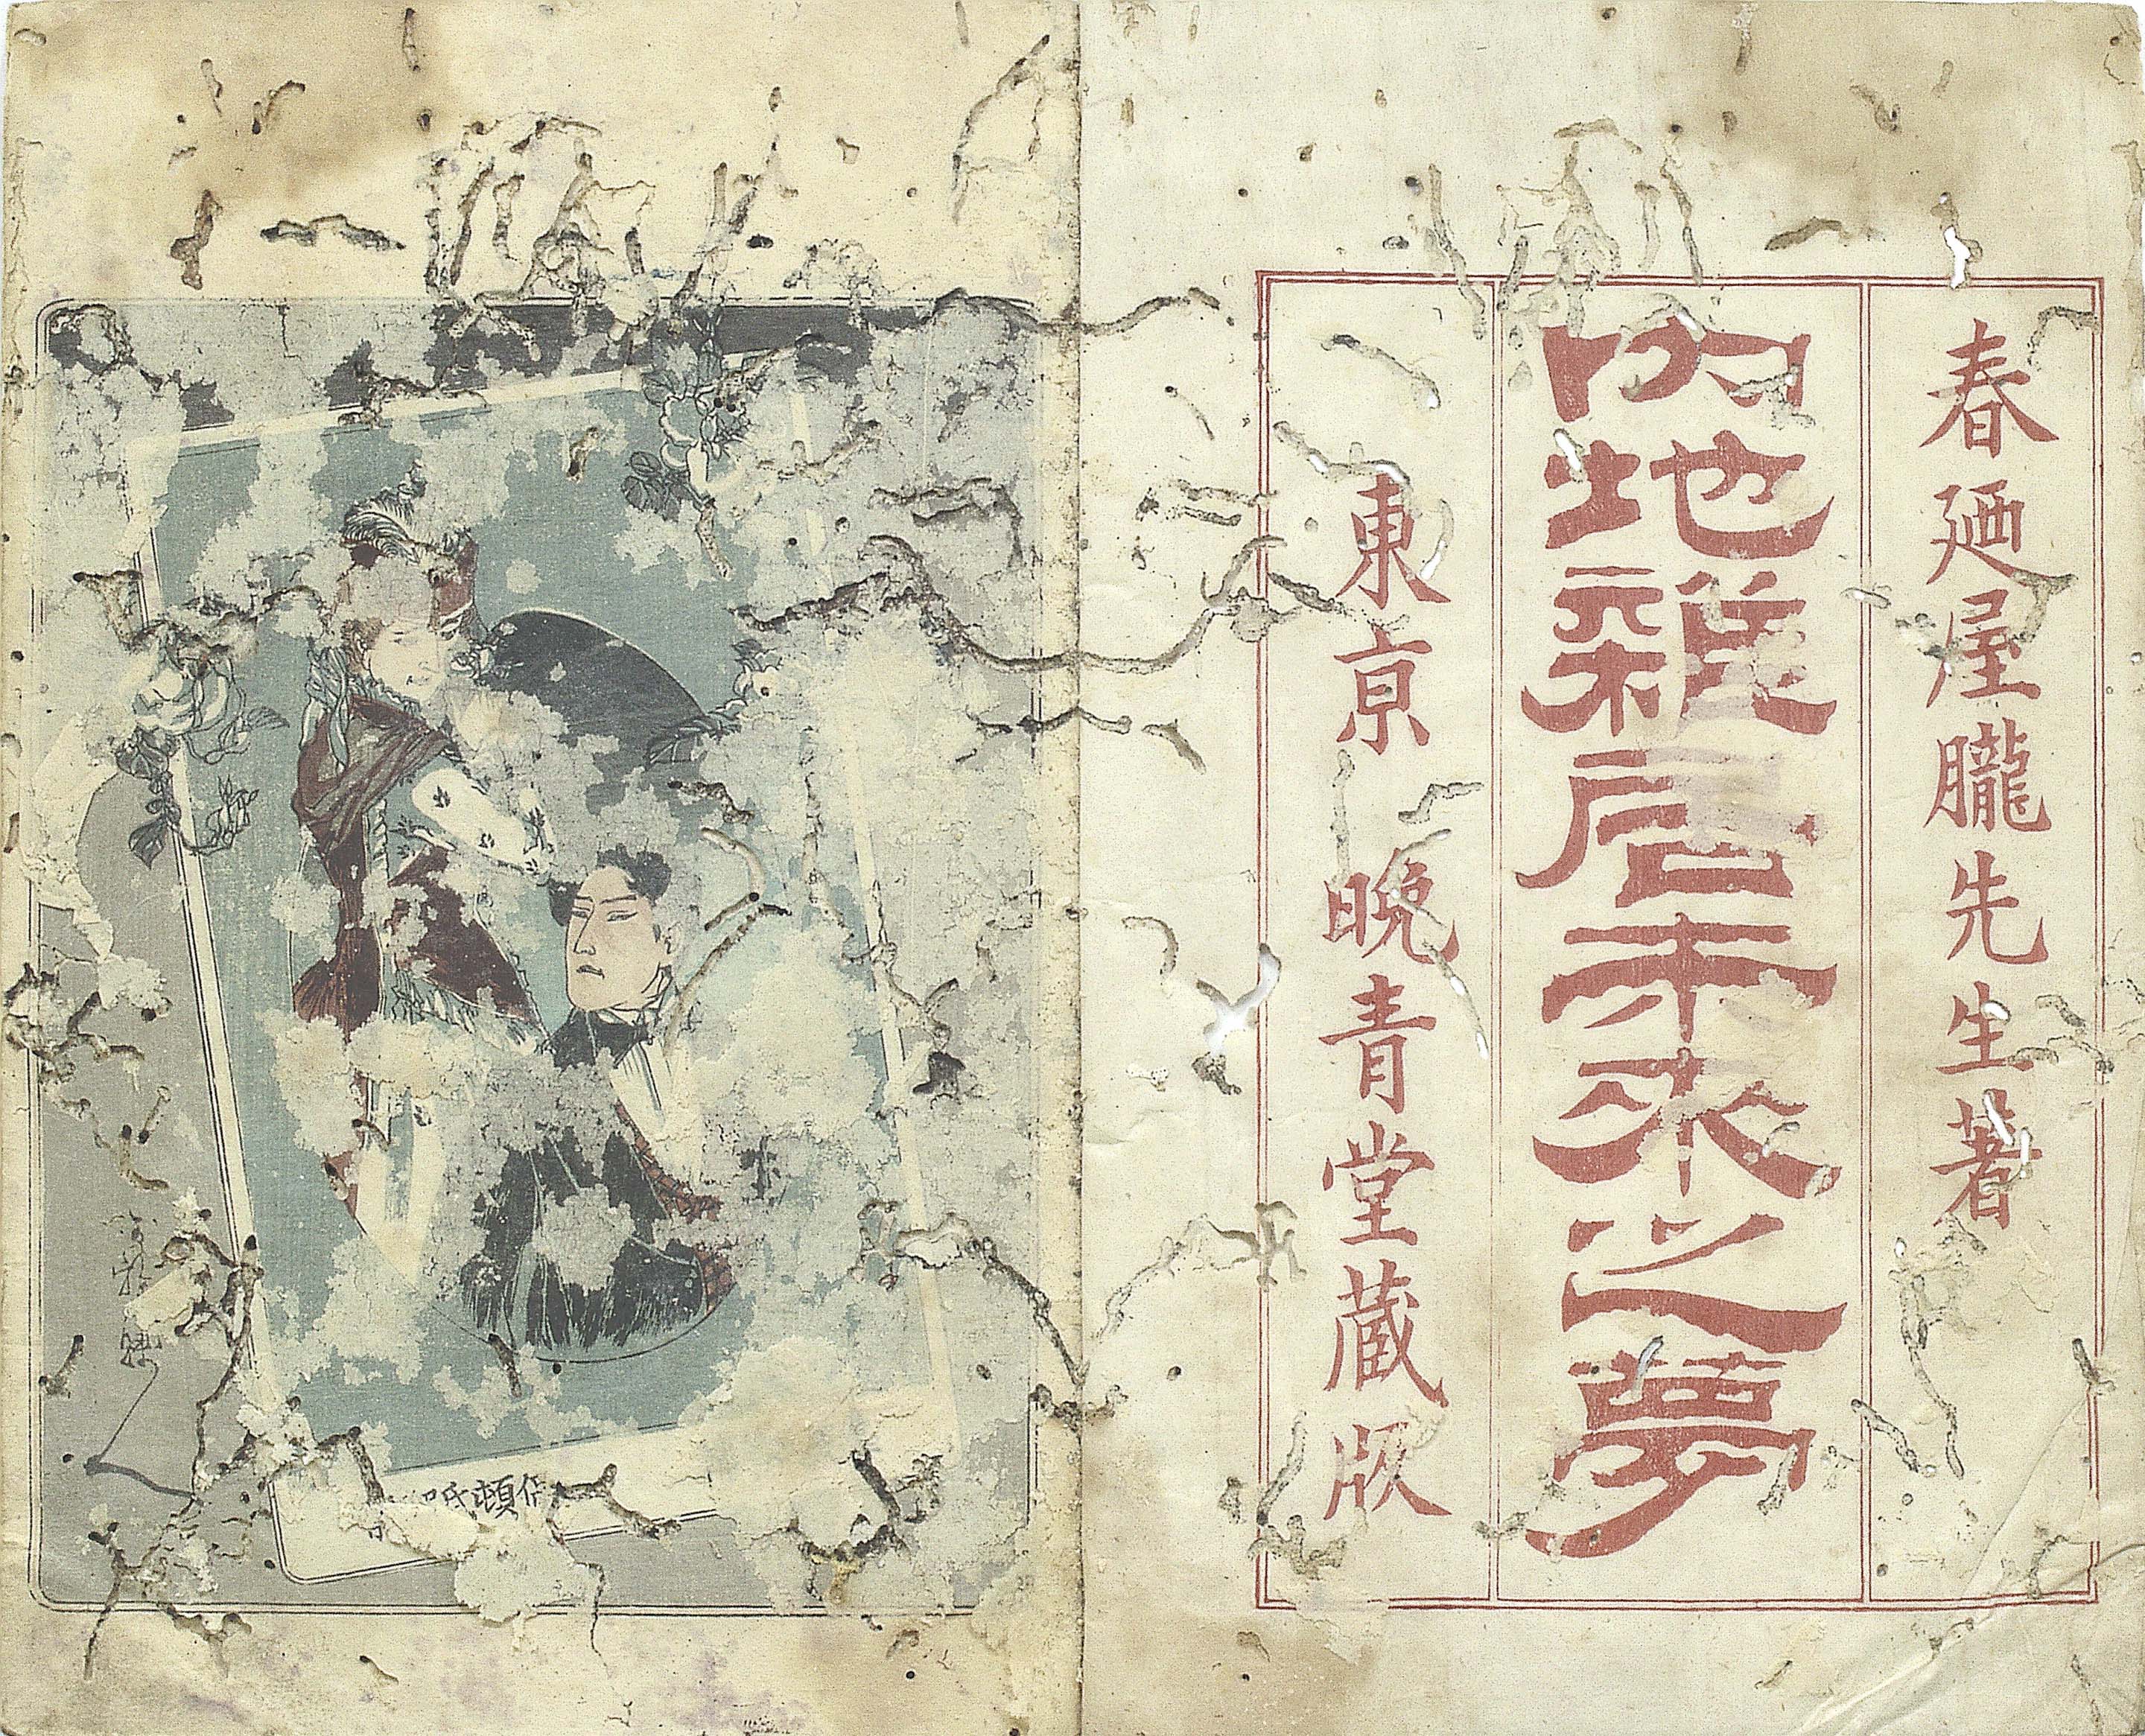 春廼屋朧先生著
内地雜居未来之夢
東京 晩青堂蔵版